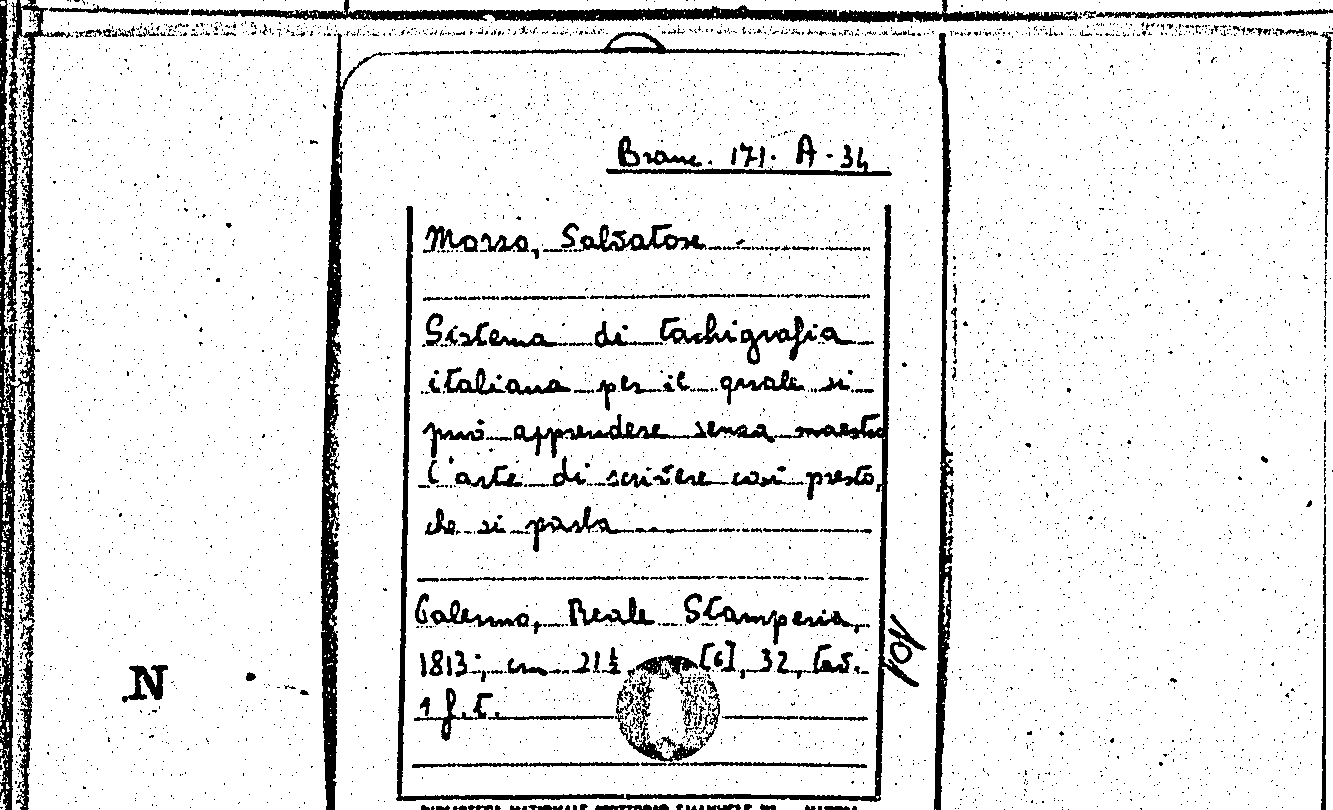 Branc. 171. A. 34
Morso, Salvatore
Sistema di tachigrafia
italiana per il quale si
può apprendere senza maestro
l'arte di scrivere così presto,
che si parla
Palermo, Reale Stamperia,
1813; cm 21½ [6], 32, tav.
1 f.t.
N
BIBLIOTECA NAZIONALE VITTORIO EMANUELE III NAPOLI